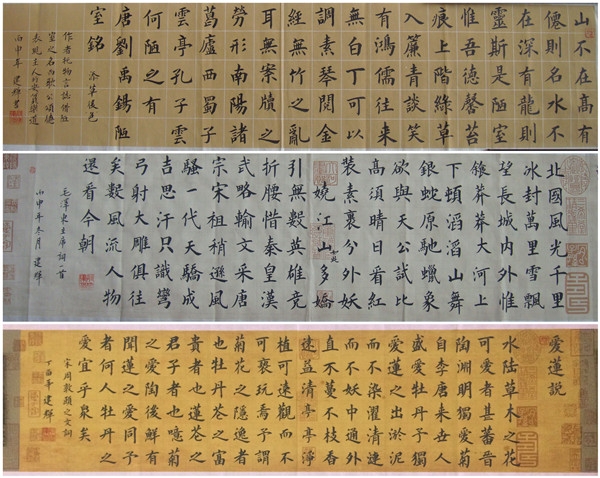 山不在高有
僊則名水不
在深有龍則
靈斯是陋室
惟吾德馨苔
痕上階綠草
入簾青談笑
有鴻儒往来
無白丁可以
調素琴閱金
經無竹之亂
耳無案牘之
勞形南陽諸
葛廬西蜀子
雲亭孔子雲
何陋之有
唐劉禹錫陋
室銘
作者托物言誌借陋
室之名而歌公頌德
表現主人的安貧樂道
丙申年建輝書
北國風光千里
冰封萬里雪飄
望長城内外惟
餘莽莽大河上
下頓滔滔山舞
銀蛇原馳蠟象
欲與天公試比
高須晴日看紅
裝素裹分外妖
嬈江山如此多嬌
引無數英雄競
折腰惜秦皇漢
武略輸文采唐
宗宋祖稍遜風
騷一代天驕成
吉思汗只識彎
弓射大雕俱往
矣數風流人物
還看今朝
毛澤東主席詞一首
丙申年冬月建輝
愛蓮說
水陸草木之花
可愛者甚蕃晉
陶淵明獨愛菊
自李唐来世人
盛愛牡丹予獨
愛蓮之出淤泥
而不染濯清漣
而不妖中通外
直不蔓不枝香
遠益清亭亭淨
植可遠觀而不
可褻玩焉予謂
菊花之隱逸者
也牡丹花之富
貴者也蓮花之
君子者也噫菊
之愛陶後鮮有
聞蓮之愛同予
者何人牡丹之
愛宜乎衆矣
宋周敦頤之文詞
丁酉年建輝